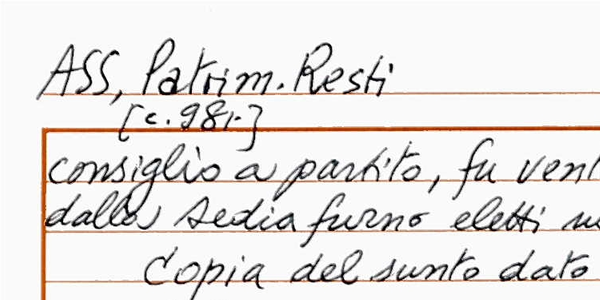 ASS, Patrim. Resti
[c. 98r.]
consiglio a partito, fu vent
dalla sedia furno eletti
Copia del sunto dato